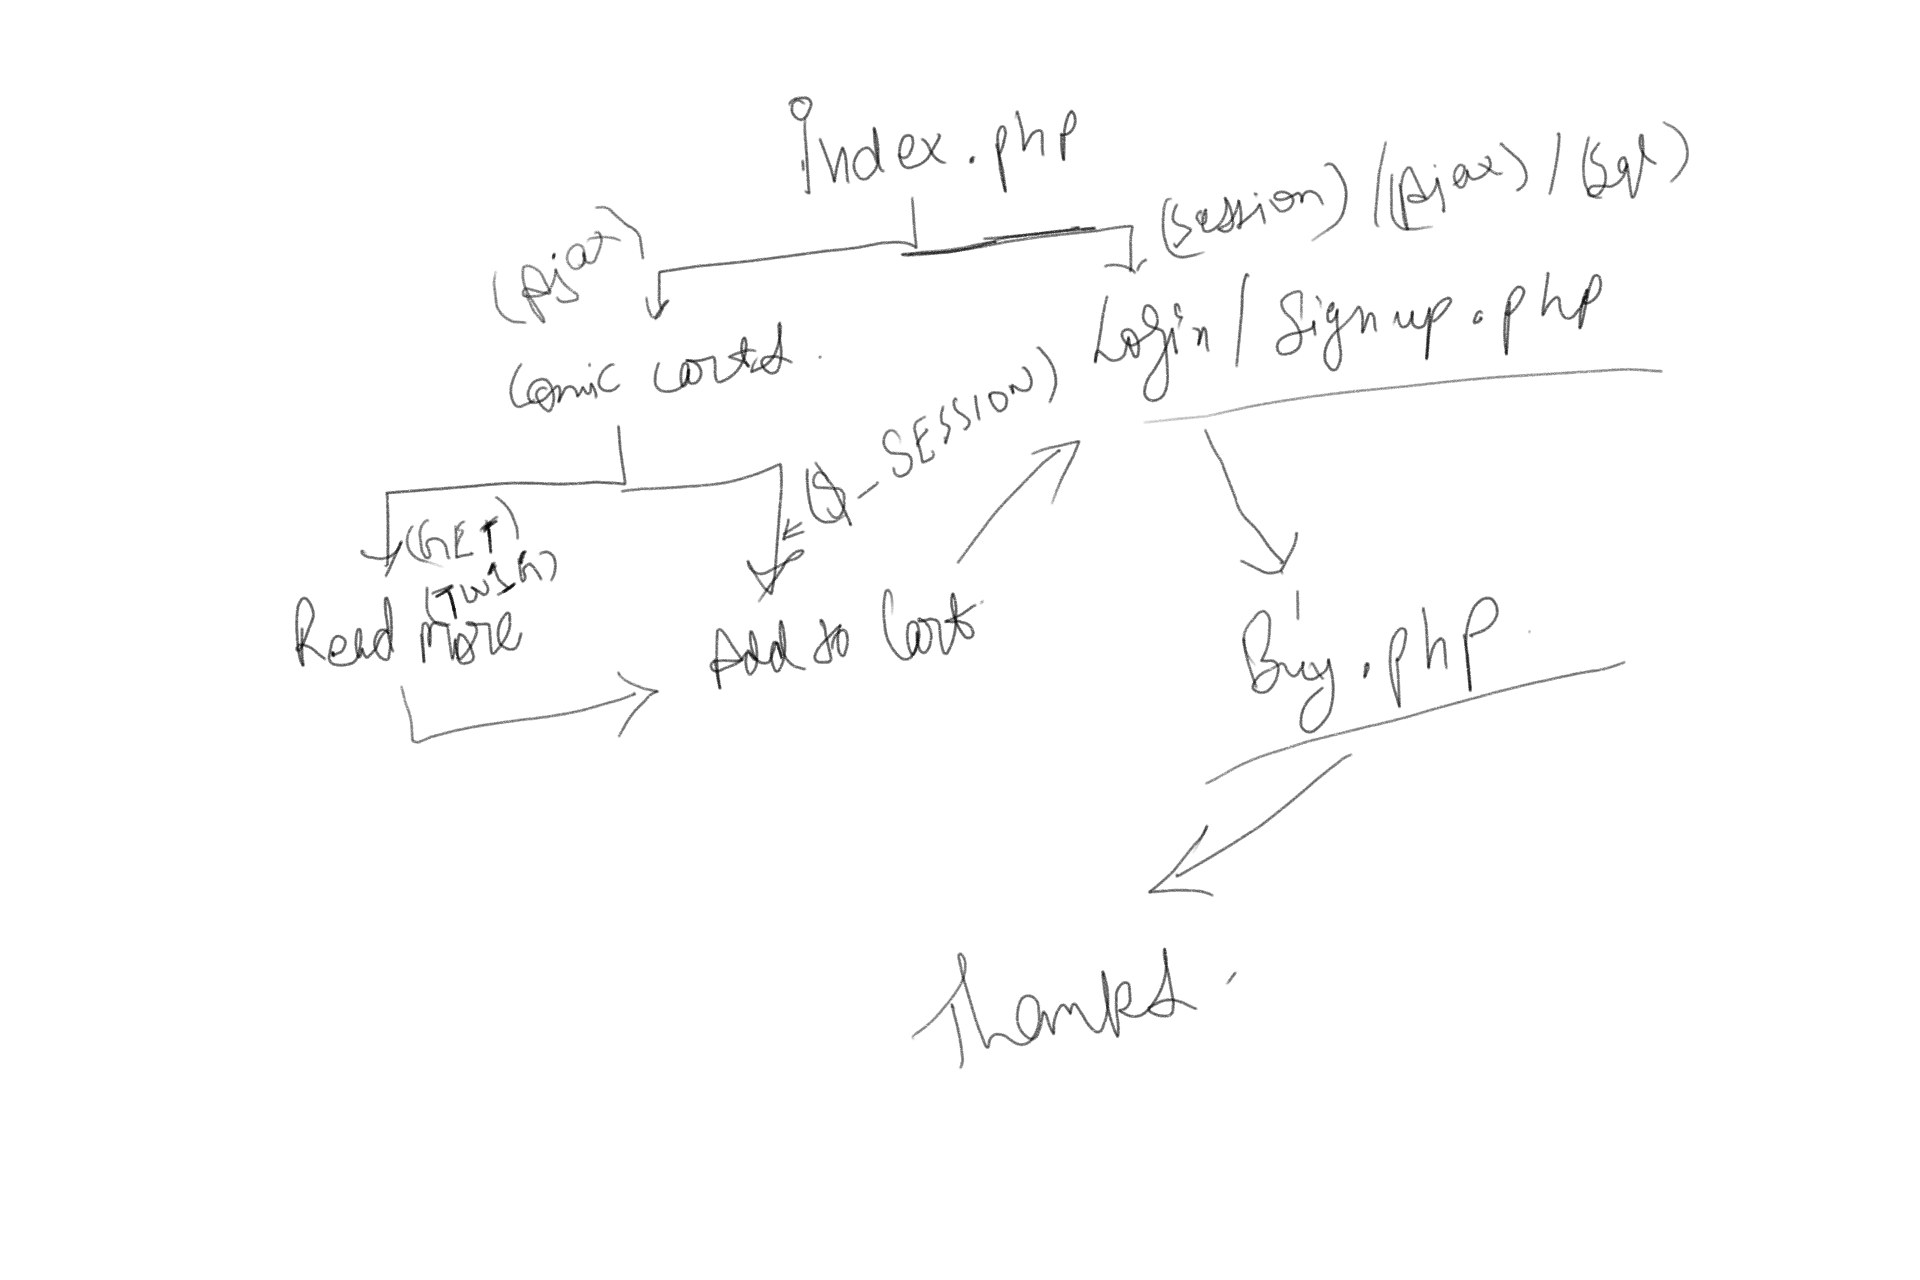 index.php
(Ajax)
(session) / (Ajax) / (Sql)
Comic carts.
Login / Signup.php
($_SESSION)
(GET)
(TWIG)
Read More
Add to Cart
Buy.php
Thanks.